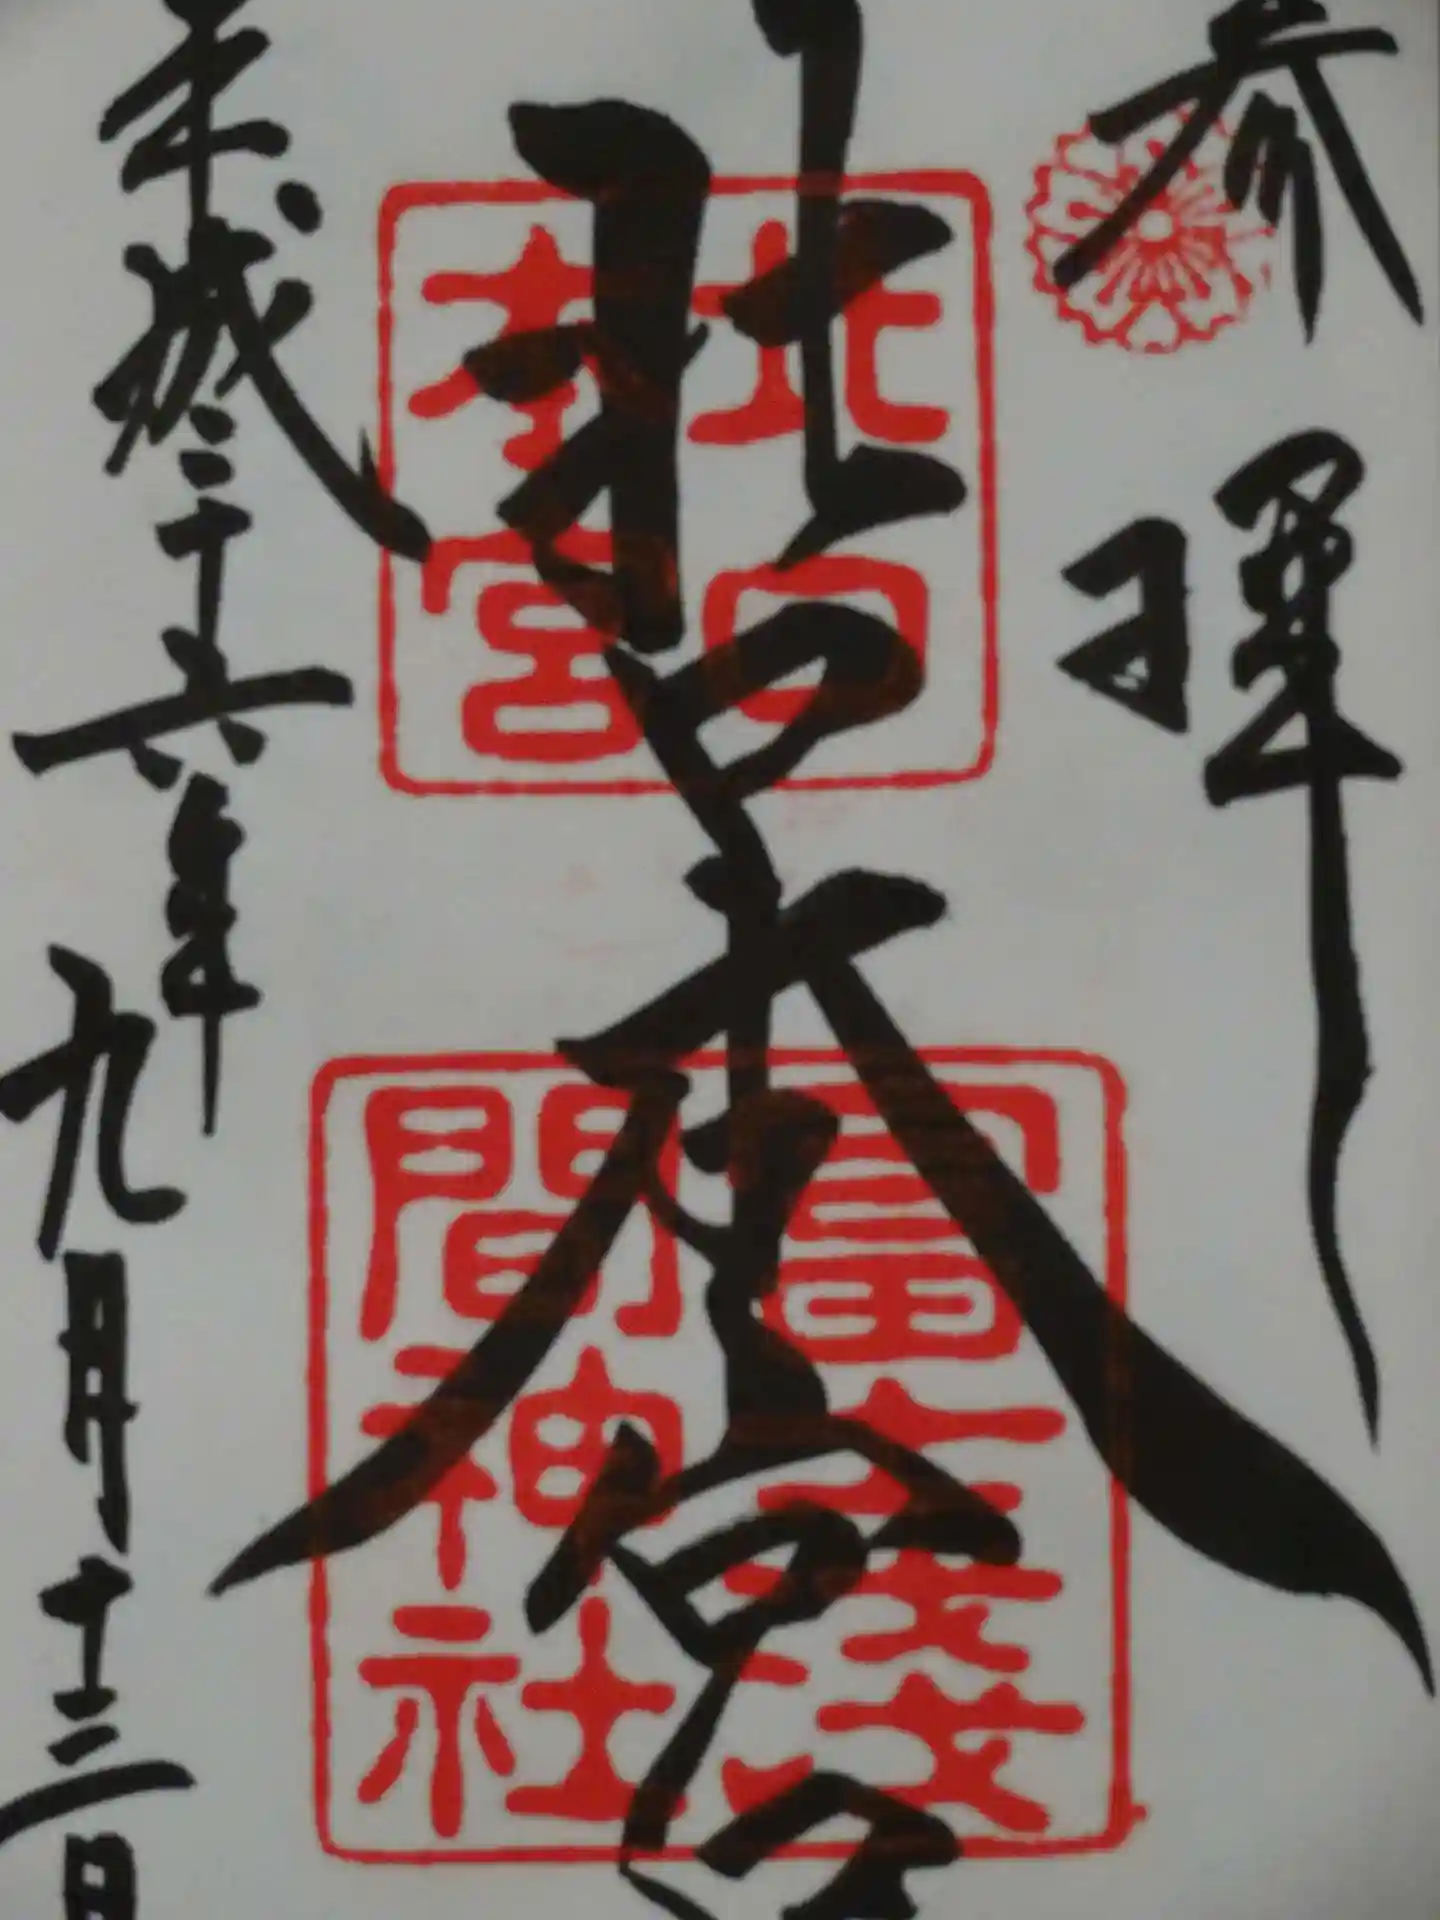 参拝
北口本宮
平成二十六年九月十三日
北口
本宮
富士浅
間神社